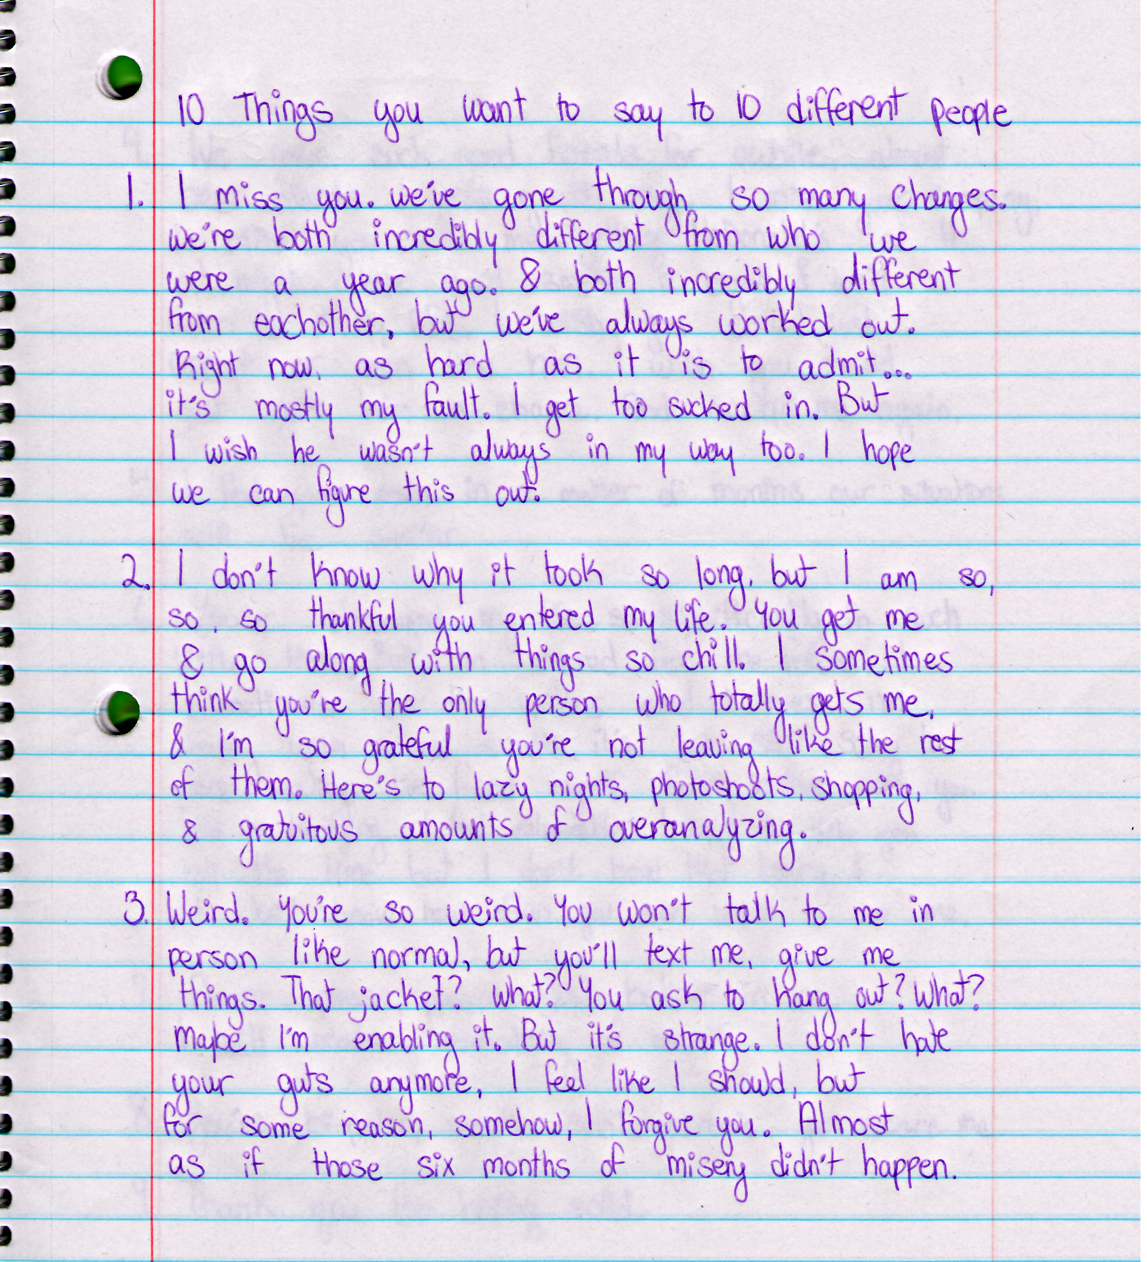 10 Things you want to say to 10 different people
1. I miss you. we've gone through so many changes.
we're both incredibly different from who we
were a year ago. & both incredibly different
from eachother, but we've always worked out.
Right now, as hard as it is to admit...
it's mostly my fault. I get too sucked in. But
I wish he wasn't always in my way too. I hope
we can figure this out.
2. I don't know why it took so long, but I am so,
so, so thankful you entered my life. You get me
& go along with things so chill. I sometimes
think you're the only person who totally gets me,
& I'm so grateful you're not leaving like the rest
of them. Here's to lazy nights, photoshoots, shopping,
& gratuitous amounts of overanalyzing.
3. Weird. You're so weird. You won't talk to me in
person like normal, but you'll text me, give me
things. That jacket? What? You ask to hang out? What?
maybe I'm enabling it. But it's strange. I don't hate
your guts anymore, I feel like I should, but
for some reason, somehow, I forgive you. Almost
as if those six months of misery didn't happen.